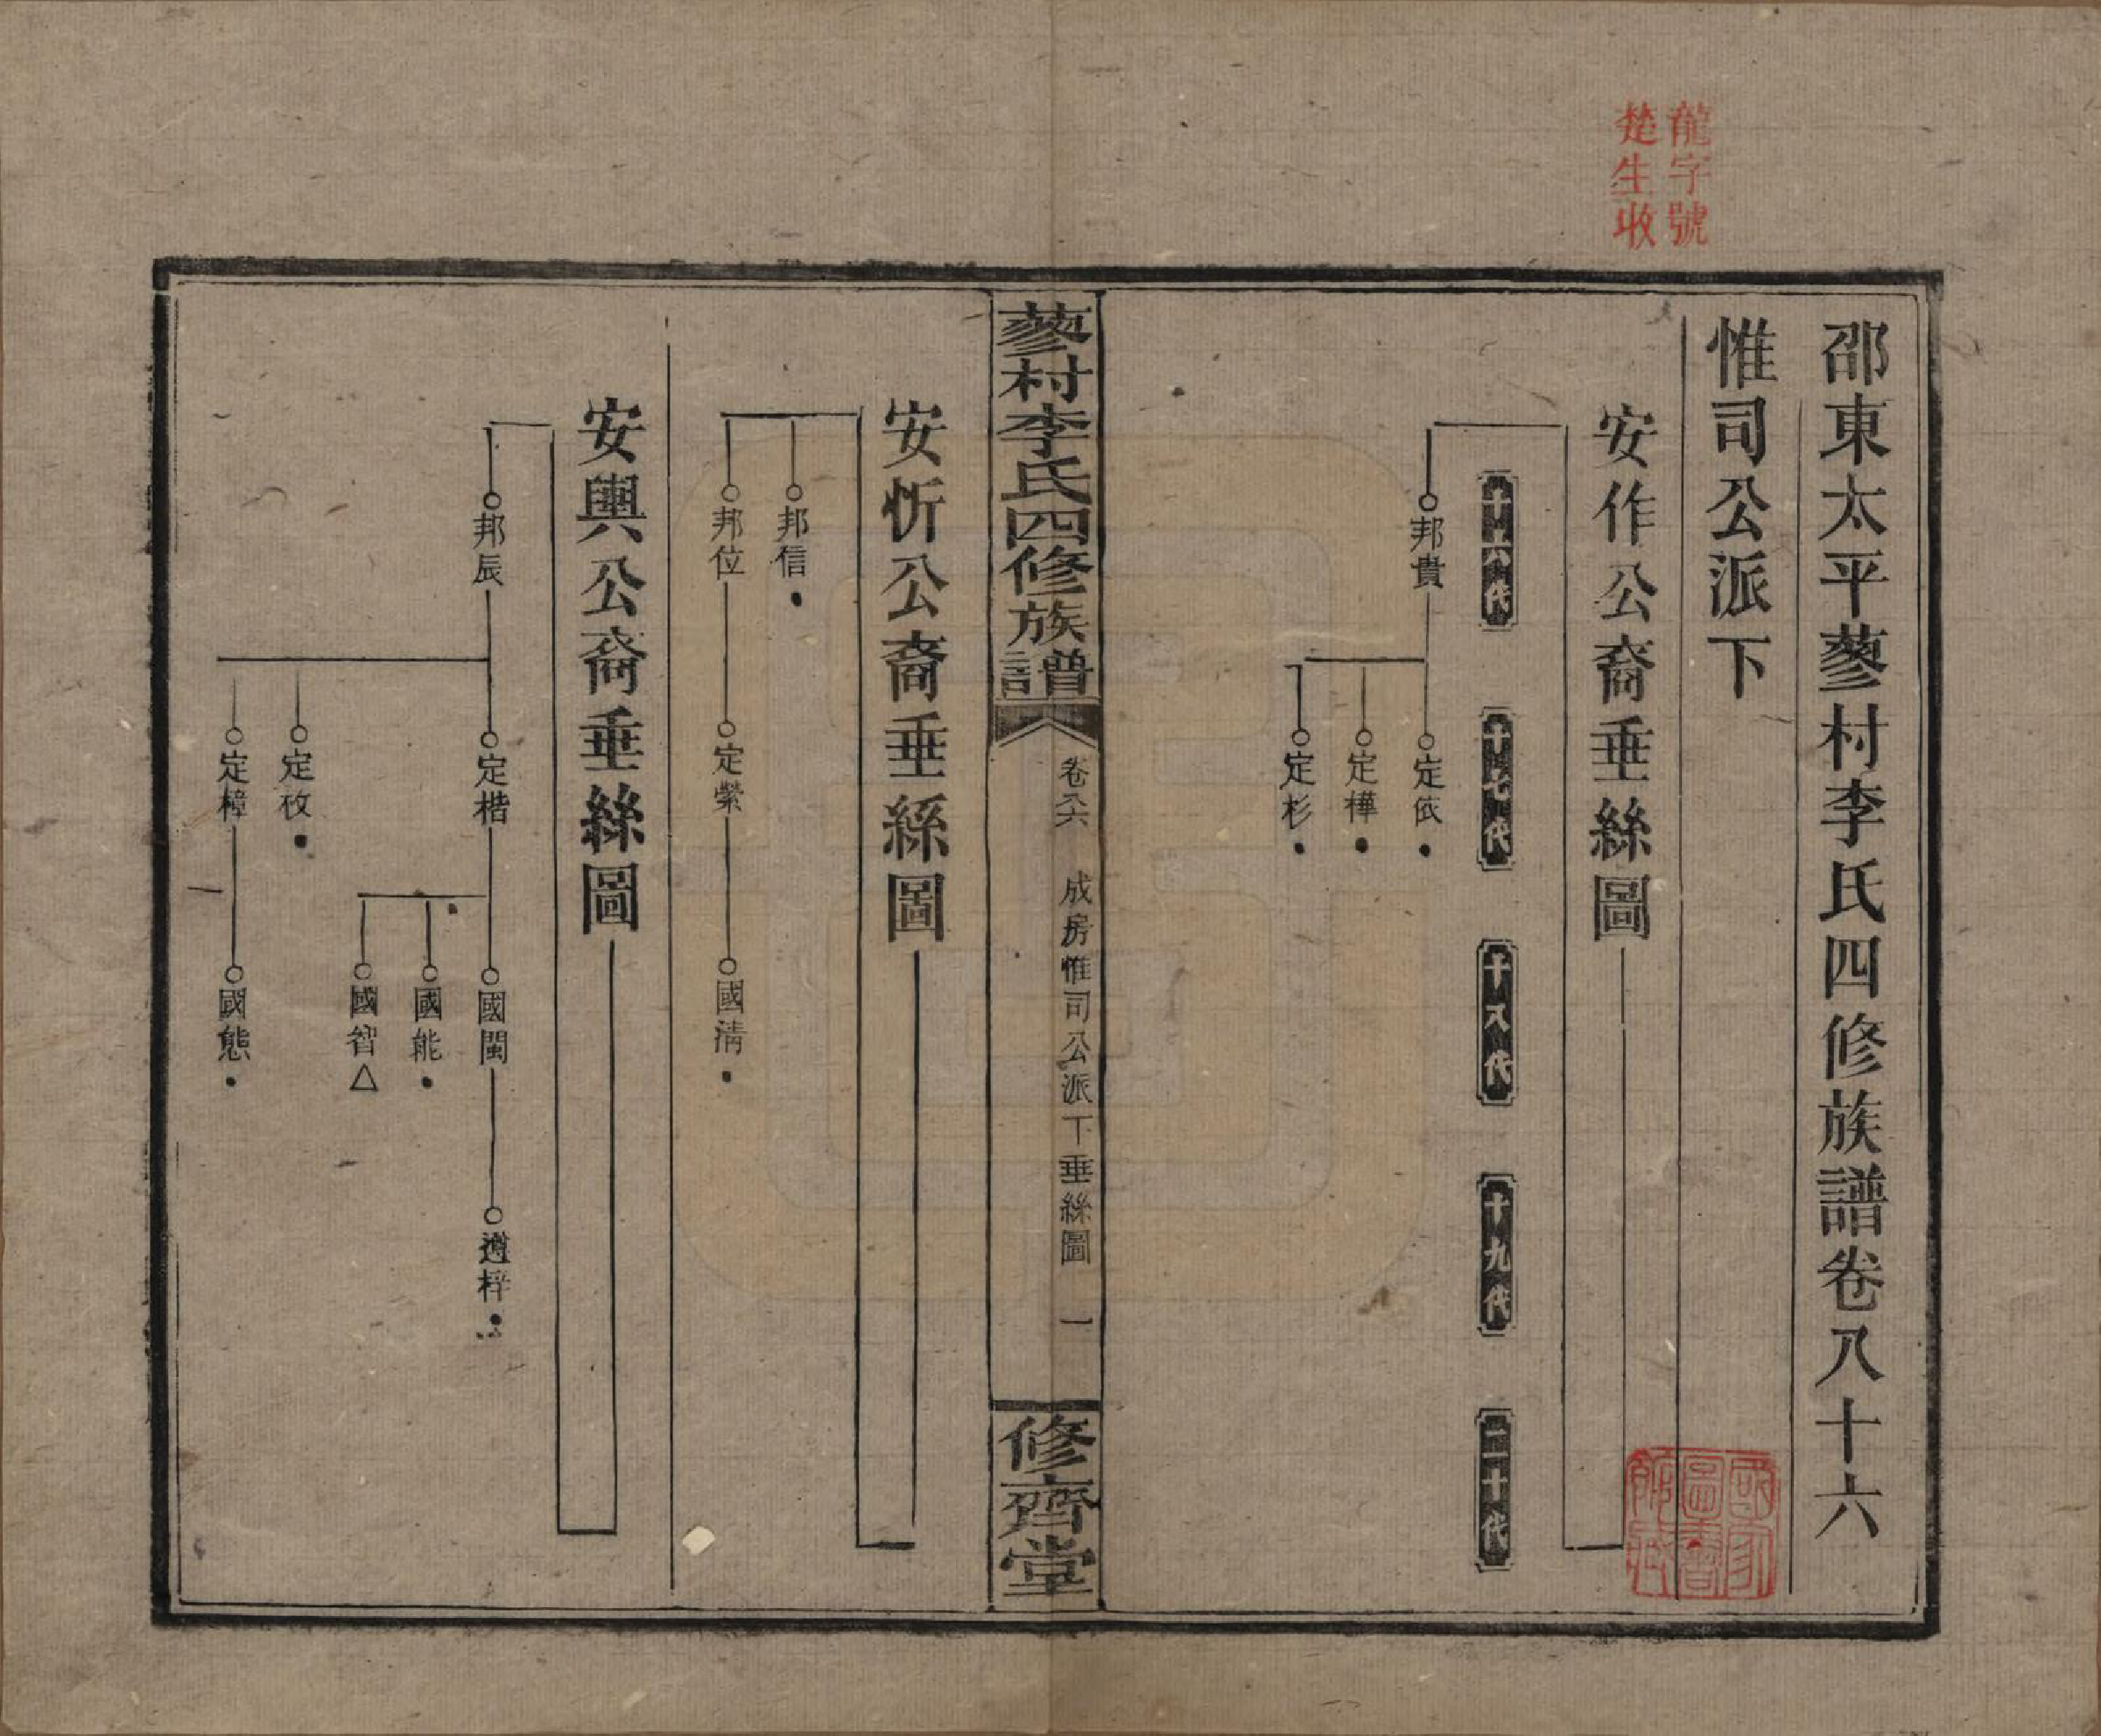 龍字號
楚生收
邵東太平蓼村李氏四修族譜卷八十六
惟司公派下
安作公裔垂絲圖
十六代
十七代
十八代
十九代
二十代
邦貴
定依
定樺
定杉
蓼村李氏四修族譜
卷八六
成房惟司公派下垂絲圖
一
修齊堂
安忻公裔垂絲圖
邦信
邦位
定縈
國清
安輿公裔垂絲圖
邦辰
定楷
國閩
遵梓
國能
國智
定攷
定樟
國態
國家圖書館藏